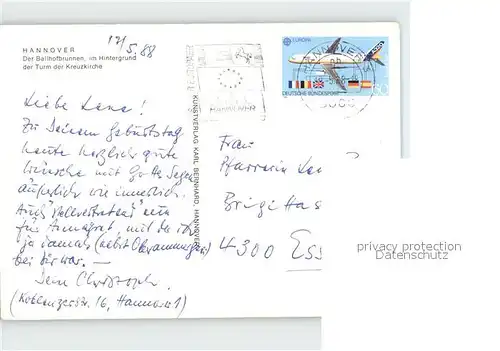 17/5.88
HANNOVER
Der Ballhofbrunnen, im Hintergrund
der Turm der Kreuzkirche
KUNSTVERLAG KARL BERNHARD, HANNOVER
HANNOVER
EUROPA
DEUTSCHE BUNDESPOST
HANNOVER
Liebe Lena!
Zu Deinem Geburtstag
heute herzlich gute
Wünsche mit Gottes Segen
äußerlich wie innerlich.
Auch
für mit der
ja jemals (nebst Oberammergau)
bei Dir war. —
Dein Christoph.
(Koblenzerstr. 16, Hannover 1)
Frau
Pfarrerin
Brigi
4300 Ess
privacy protection
Datenschutz